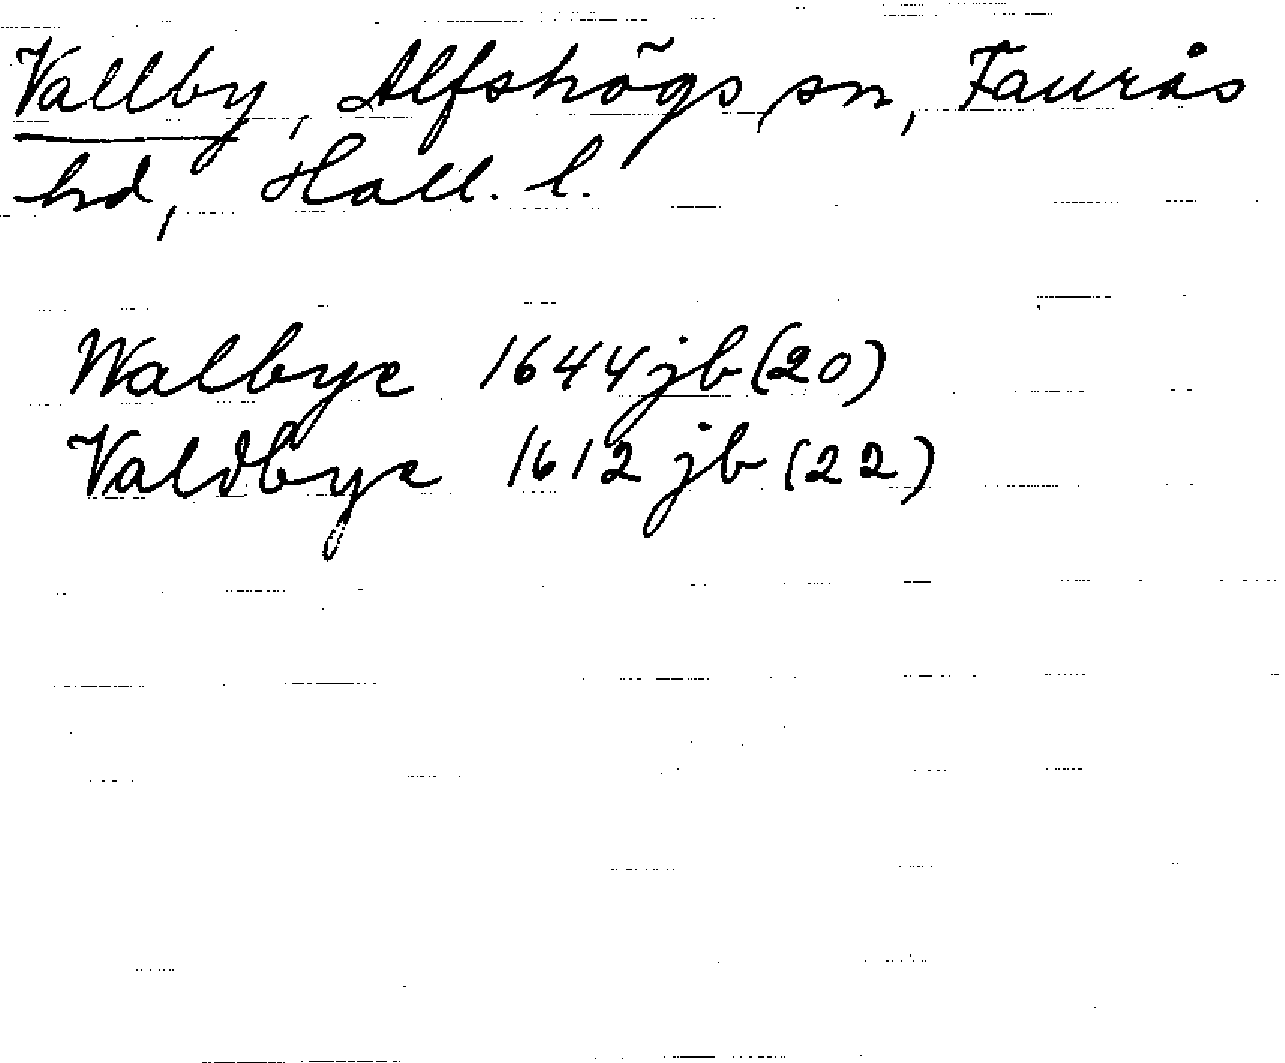 Vallby, Alfshögs sn, Faurås
hd, Hall. l.
Walbye 1644 jb (20)
Valdbye 1612 jb (22)